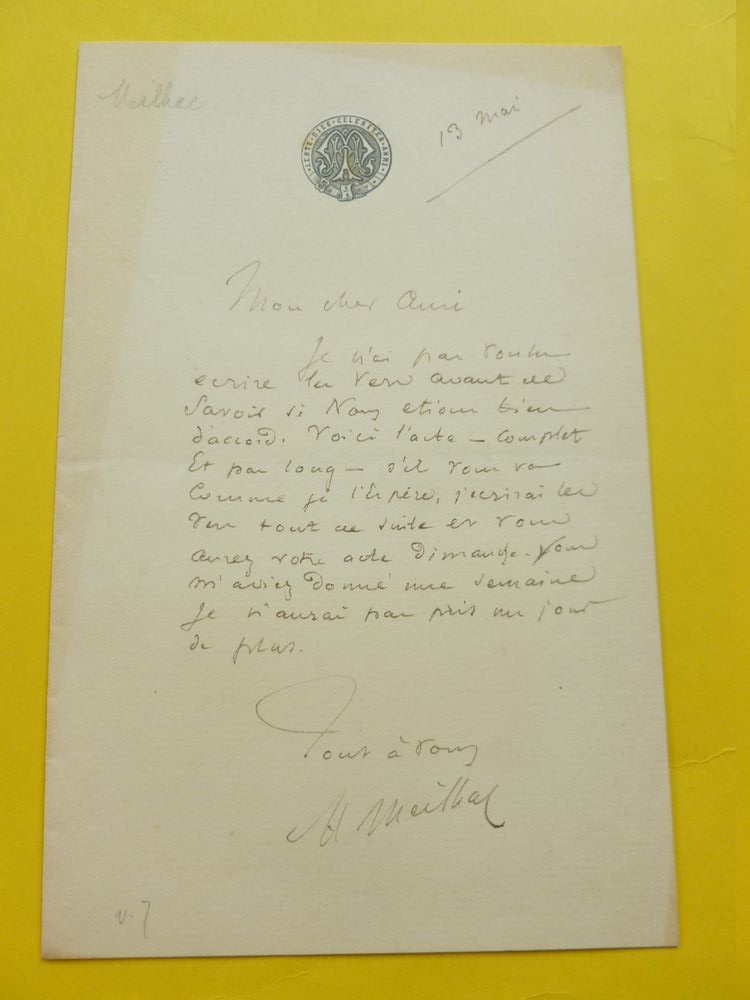 Meilhac
LENTE · DIES · CELERITER · ANNI
13 mai
Mon cher Ami
Je n'ai pas voulu
ecrire les vers avant de
Savoir si Nous etions bien
d'accord. Voici l'acte — complet
Et pas long — s'il vous va
Comme je l'Espère, j'ecrirai les
vers tout de suite et vous
aurez votre acte Dimanche. Vous
m'aviez Donné une semaine
Je n'aurai pas pris un jour
de plus.
Tout à vous
H Meilhac